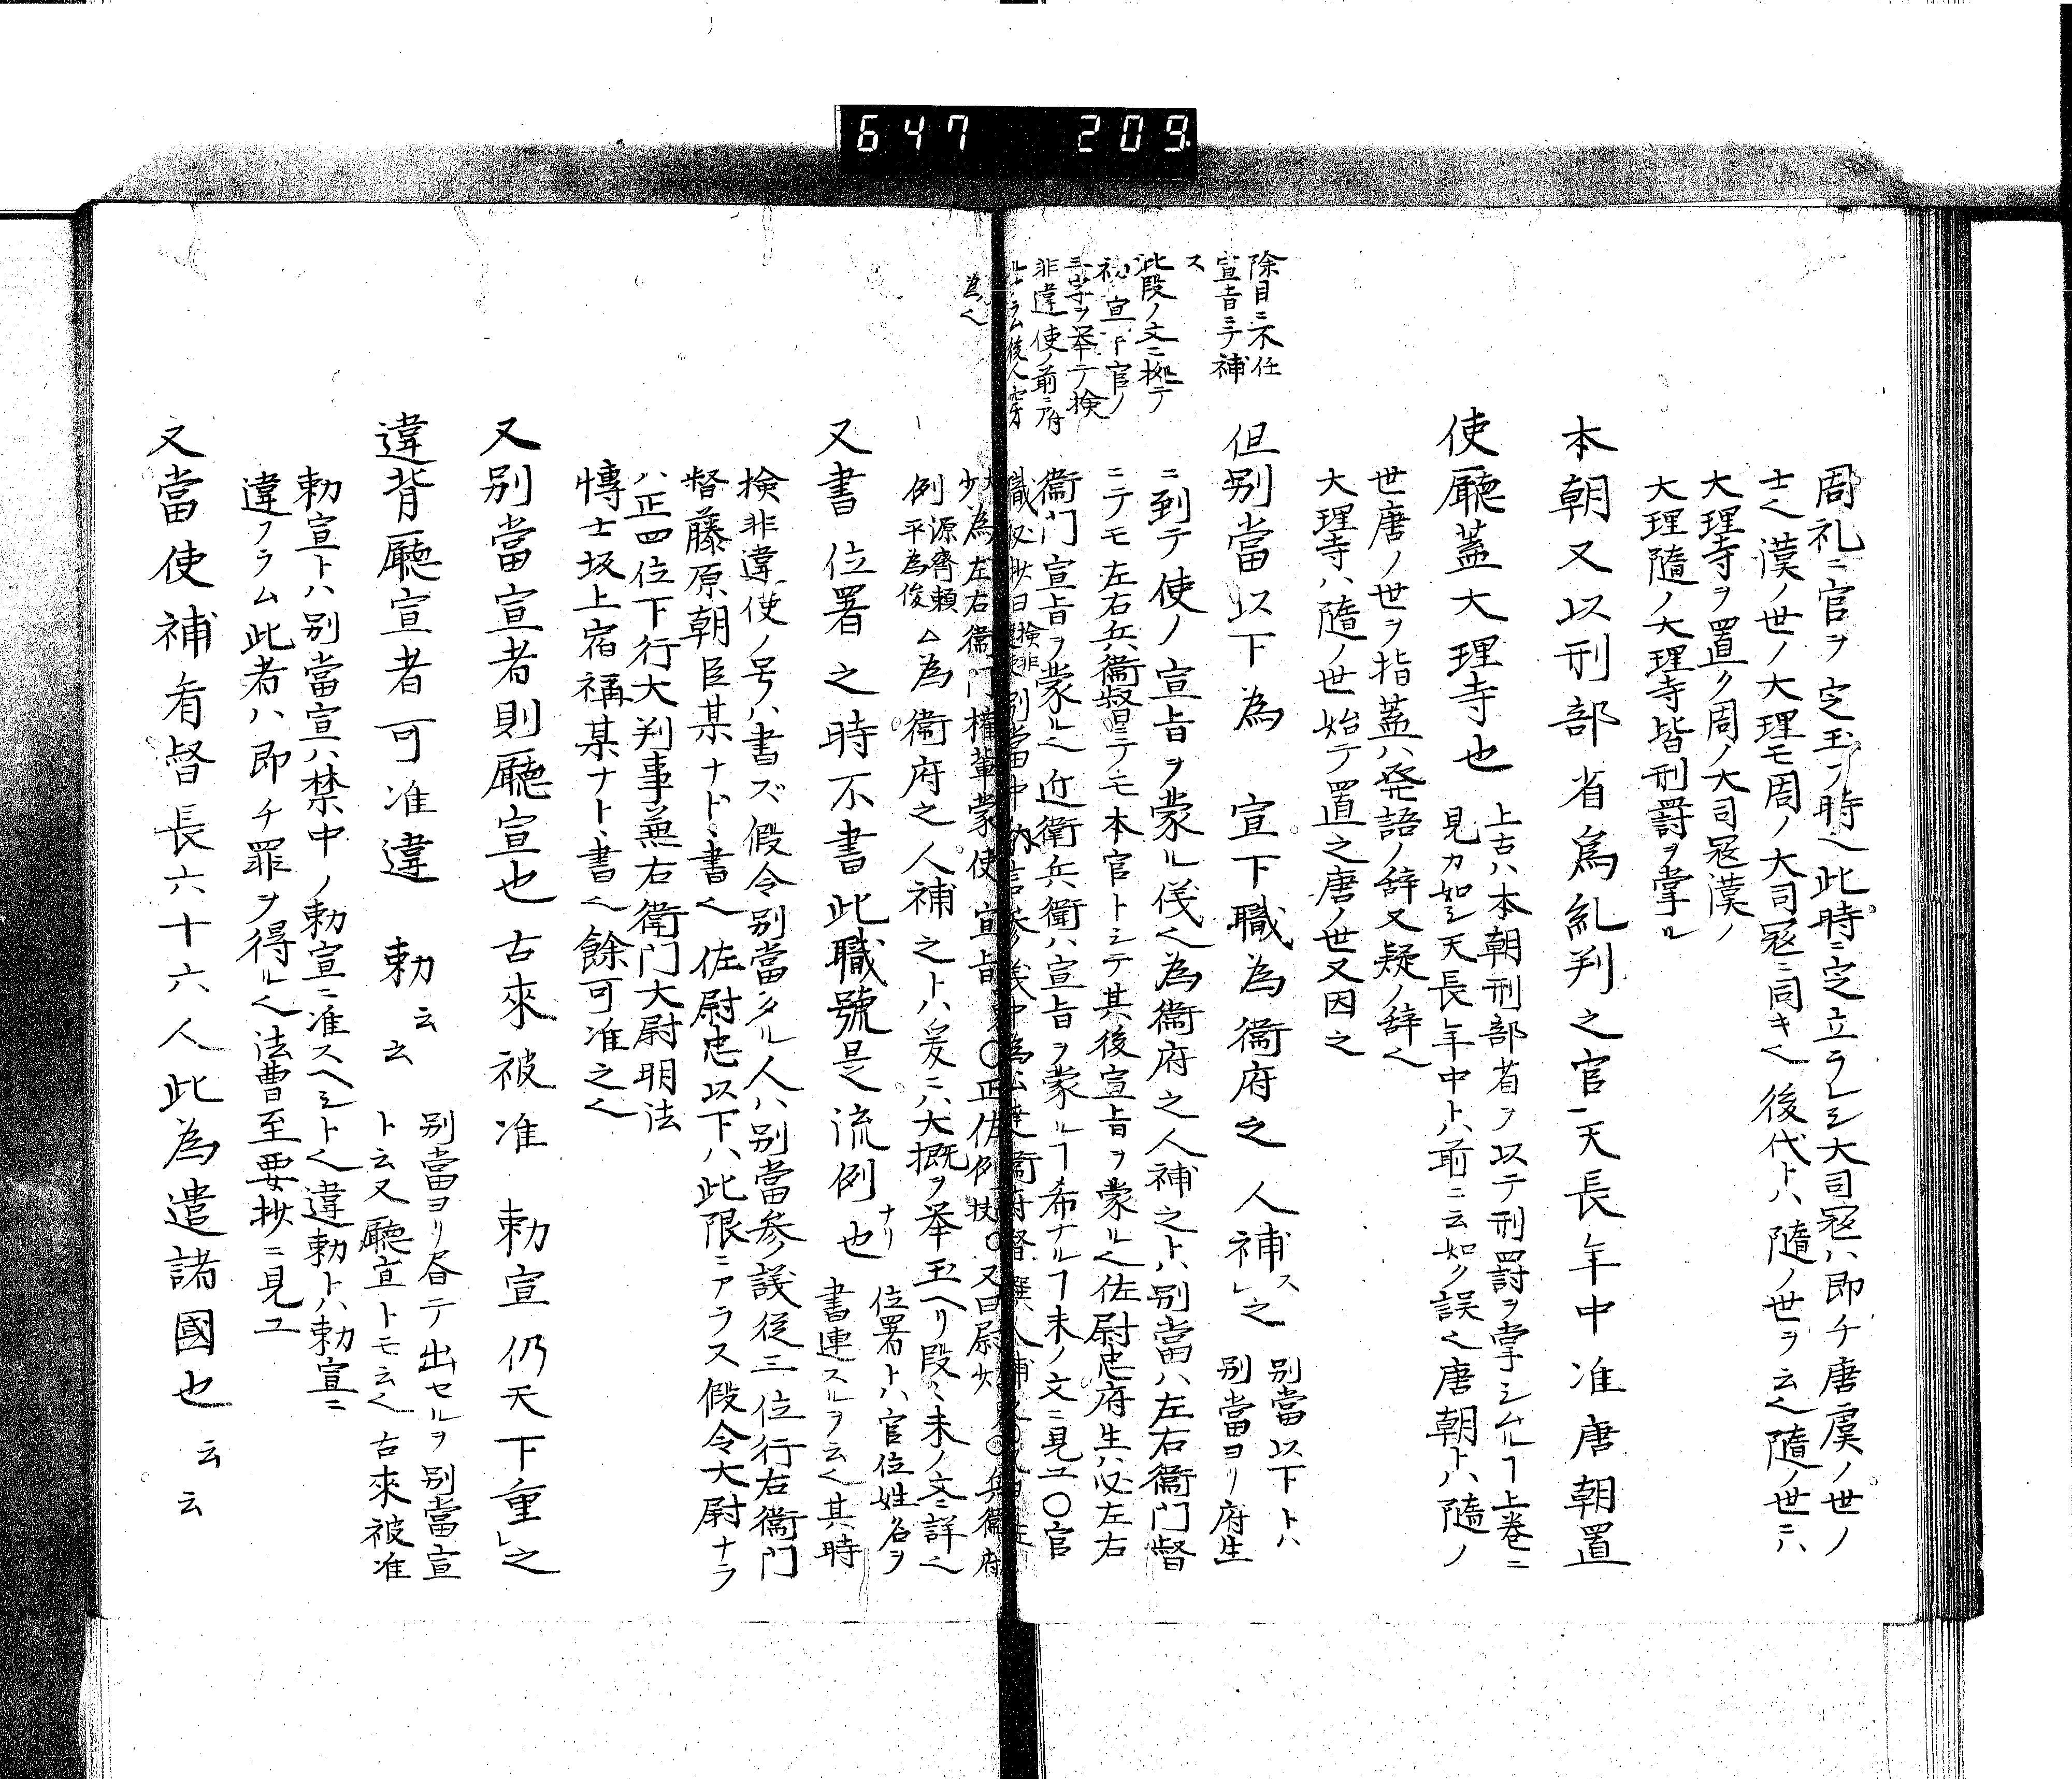 647 209
周礼ニ官ヲ定玉フ時ㇸ此時ニ定立ラレシ大司冦ハ即チ唐虞ノ世ノ
士ㇸ漢ノ世ノ大理モ周ノ大司冦ニ同キㇸ後代トハ隨ノ世ヲ云ㇸ隨ノ世ニハ
大理寺ヲ置ク周ノ大司冦漢ノ
大理隨ノ大理寺皆刑罸ヲ掌ル
本朝又以刑部省爲糺判之官天長年中准唐朝置
使廳蓋大理寺也
上古ハ本朝刑部省ヲ以テ刑罸ヲ掌シムルヿ上巻ニ
見カ如シ天長年中トハ前ニ云如ク誤ㇸ唐朝トハ隨ノ
世唐ノ世ヲ指蓋ハ発語ノ辞又疑ノ辞ㇸ
大理寺ハ隨ノ世始テ置之唐ノ世又因之
除目ニ不任
宣旨ニテ補
ス
但別當以下為 宣下職為衞府之人補ス之
別當以下トハ
別當ヨリ府生
ニ到テ使ノ宣旨ヲ蒙ル儀ㇸ為衞府之人補之トハ別當ハ左右衞門督
ニテモ左右兵衞督ニテモ本官トシテ其後宣旨ヲ蒙ルㇸ佐尉志府生ハ必左右
衞門宣旨ヲ蒙ルㇸ近衛兵衛ハ宣旨ヲ蒙ルヿ希ナルヿ末ノ文ニ見ユ〇官
此段ノ文ニ拠テ
初宣下官ノ
三字ヲ挙テ検
非違使ノ前ニ府
為ㇸ
少為左右衞門權輩蒙使宣旨
例源齊頼
平為俊
為衞府之人補之トハ爰ニハ大概ヲ挙玉ヘリ段々末ノ文ニ詳ㇸ
又書位署之時不書此職號是流例也ナリ
位署トハ官位姓名ヲ
書連スルヲ云ㇸ其時
検非違使ノ号ハ書ズ假令別當タル人ハ別當参議従三位行右衞門
督藤原朝臣某ナドヽ書ㇸ佐尉志以下ハ此限ニアラス假令大尉ナラ
ハ正四位下行大判事兼右衛門大尉明法
博士坂上宿禰某ナトヽ書ㇸ餘可准之ㇸ
又別當宣者則廳宣也古來被准 勅宣仍天下重之
違背廳宣者可准違 勅云云
別當ヨリ昼テ出セルヲ別當宣
ト云又廳宣トモ云ㇸ古來被准
勅宣トハ別當宣ハ禁中ノ勅宣ニ准スヘシトㇸ違勅トハ勅宣ニ
違フラム此者ハ即チ罪ヲ得ルㇸ法曹至要抄ニ見ユ
又當使補看督長六十六人此為遣諸國也云云